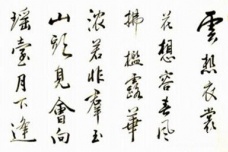 雲想衣裳
花想容春風
拂檻露華
濃若非羣玉
山頭見會向
瑤臺月下逢